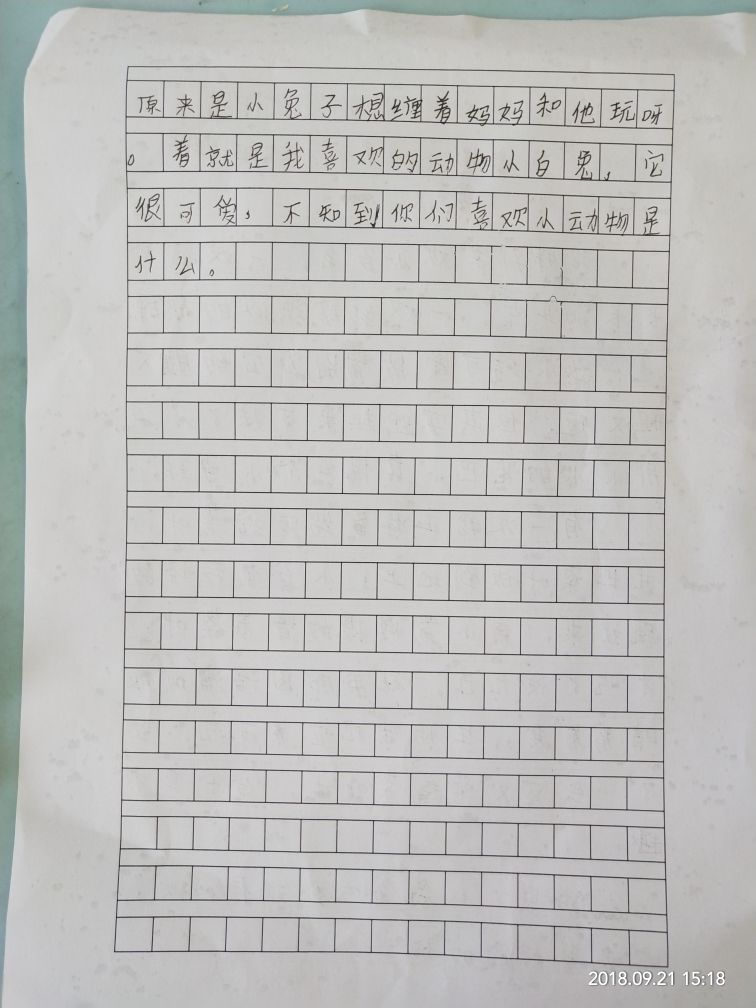 原来是小兔子想缠着妈妈和他玩呀
。着就是我喜欢的动物小白兔，它
很可爱，不知到你们喜欢小动物是
什么。
2018.09.21 15:18